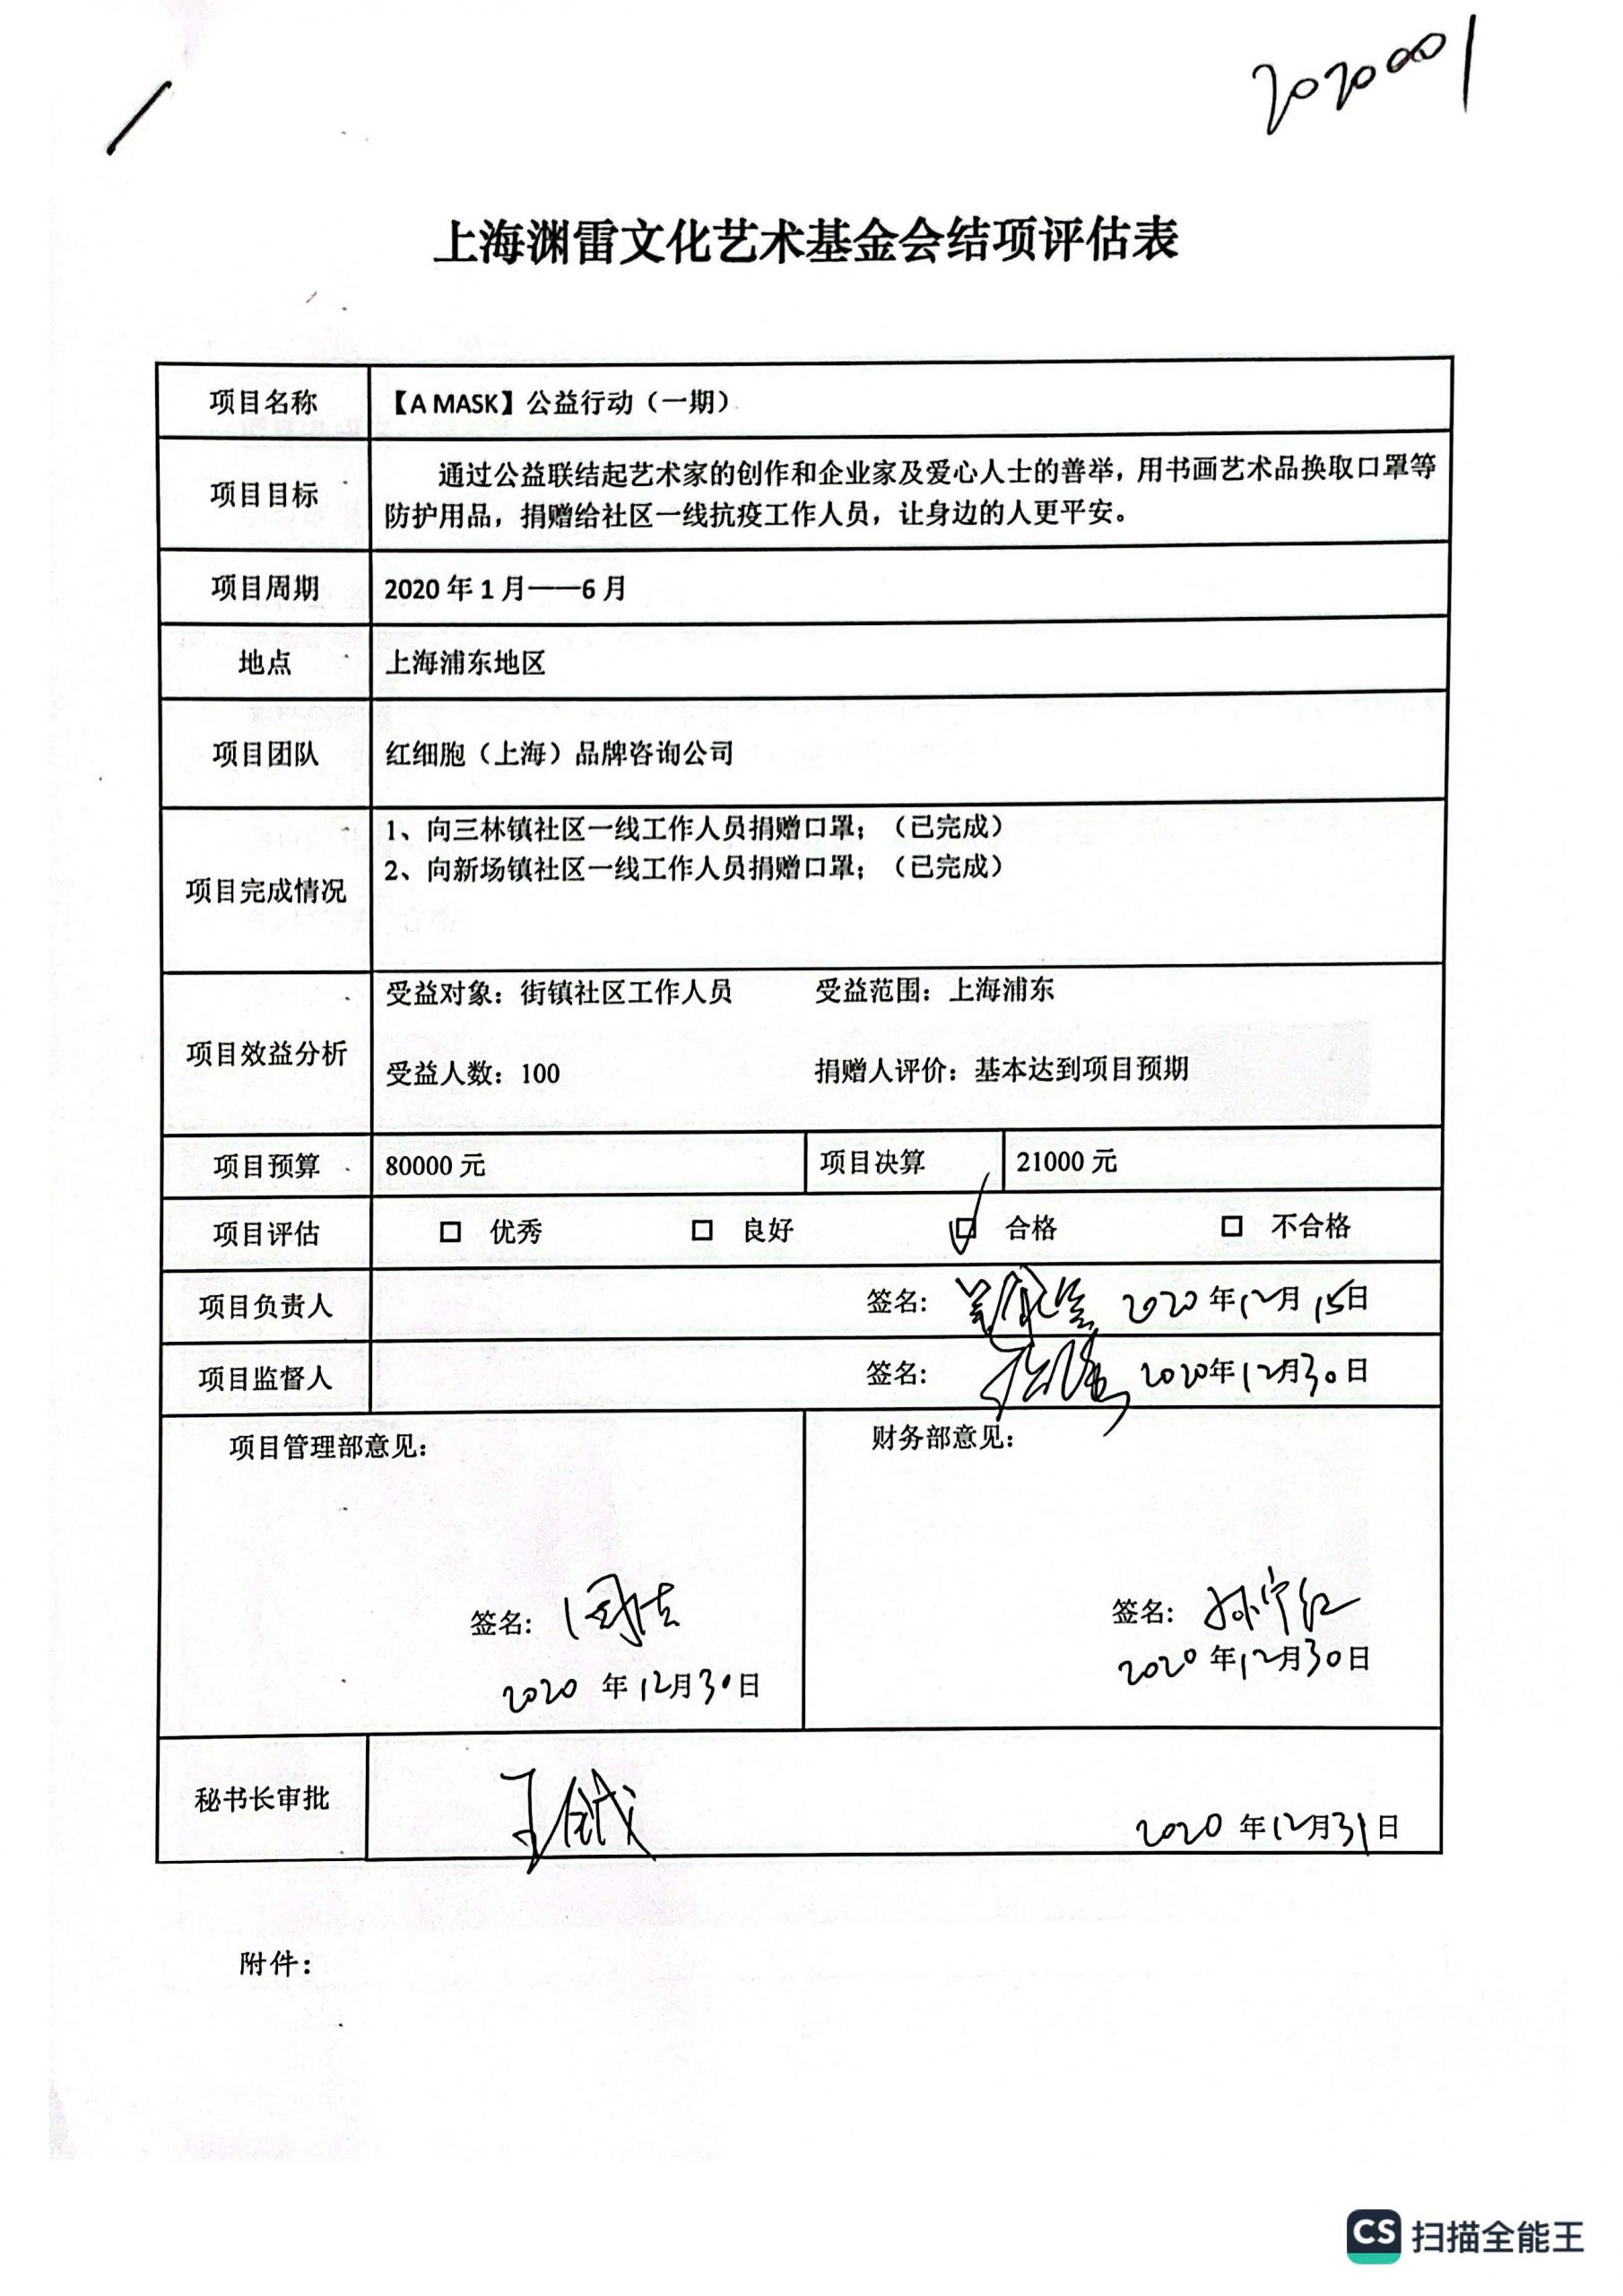 2020001
上海渊雷文化艺术基金会结项评估表
项目名称 【A MASK】公益行动（一期）
项目目标 通过公益联结起艺术家的创作和企业家及爱心人士的善举，用书画艺术品换取口罩等
防护用品，捐赠给社区一线抗疫工作人员，让身边的人更平安。
项目周期 2020 年 1 月——6 月
地点 上海浦东地区
项目团队 红细胞（上海）品牌咨询公司
项目完成情况 1、向三林镇社区一线工作人员捐赠口罩；（已完成）
2、向新场镇社区一线工作人员捐赠口罩；（已完成）
项目效益分析 受益对象：街镇社区工作人员 受益范围：上海浦东
受益人数：100 捐赠人评价：基本达到项目预期
项目预算 80000 元 项目决算 21000 元
项目评估 □ 优秀 □ 良好 ☑ 合格 □ 不合格
项目负责人 签名： 2020 年 12 月 15 日
项目监督人 签名： 2020 年 12 月 30 日
项目管理部意见： 财务部意见：
签名： 签名：孙宁红
2020 年 12 月 30 日 2020 年 12 月 30 日
秘书长审批 2020 年 12 月 31 日
附件：
CS 扫描全能王